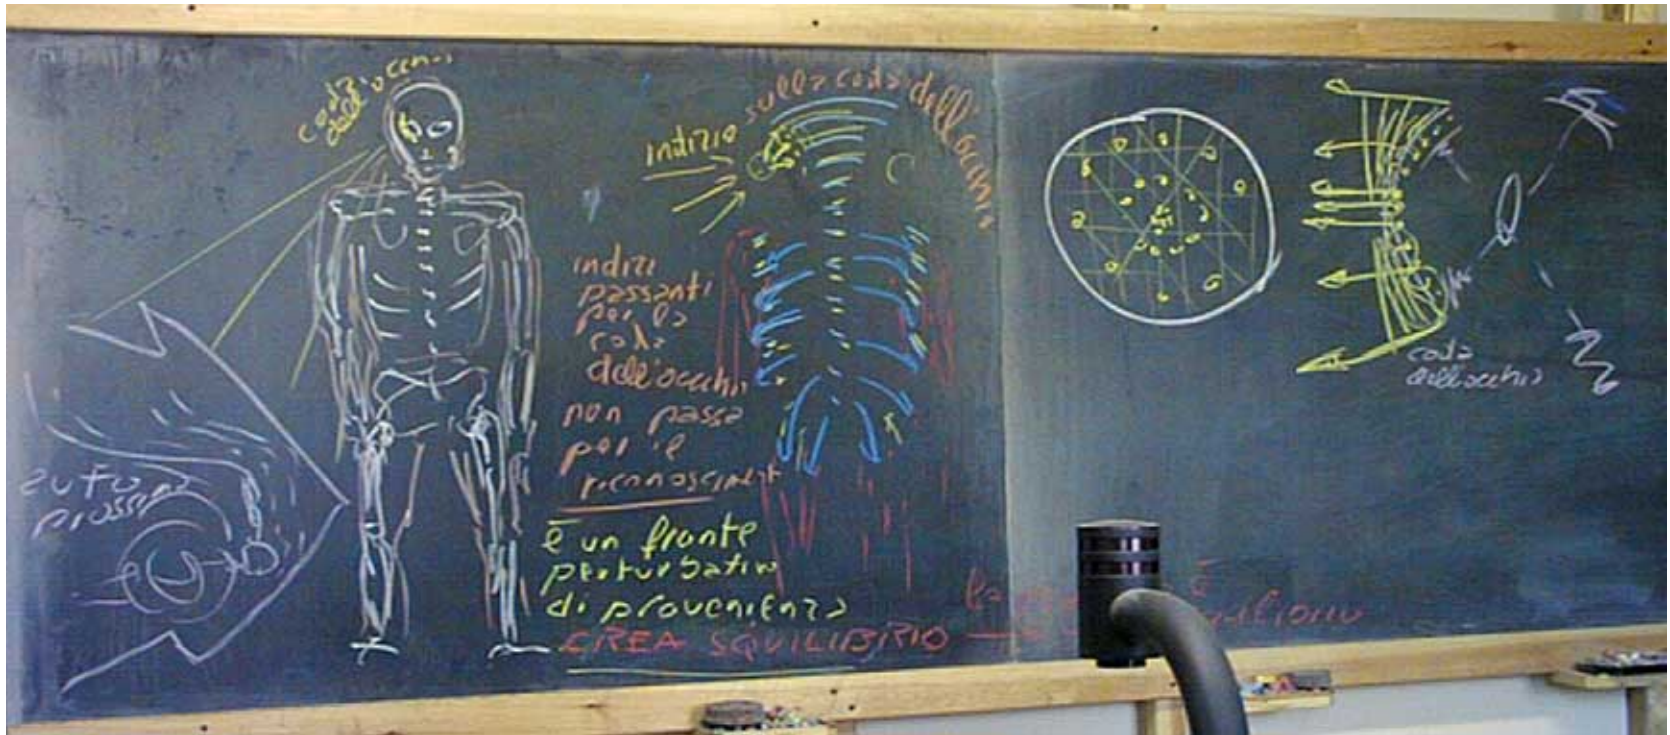 coda
dell'occhio
indizio
sulla coda dell'occhio
indizi
passanti
per la
coda
dell'occhio
non passa
per il
riconoscimento
è un fronte
perturbativo
di provenienza
CREA SQUILIBRIO
coda
dell'occhio